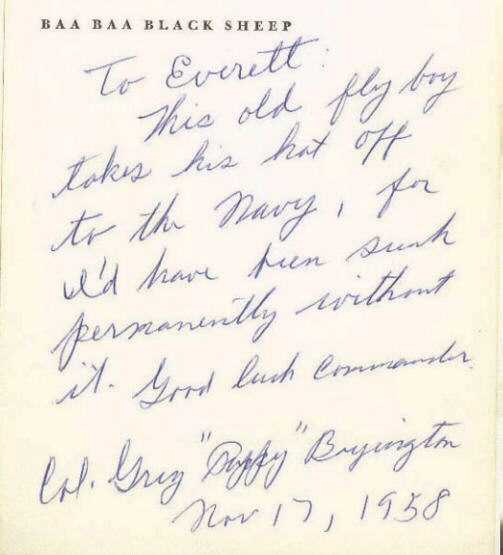 BAA BAA BLACK SHEEP
To Everett:
This old fly boy
takes his hat off
to the Navy, for
I'd have been sunk
permanently without
it. Good luck Commander.
Col. Greg "Pappy" Boyington
Nov 17, 1958